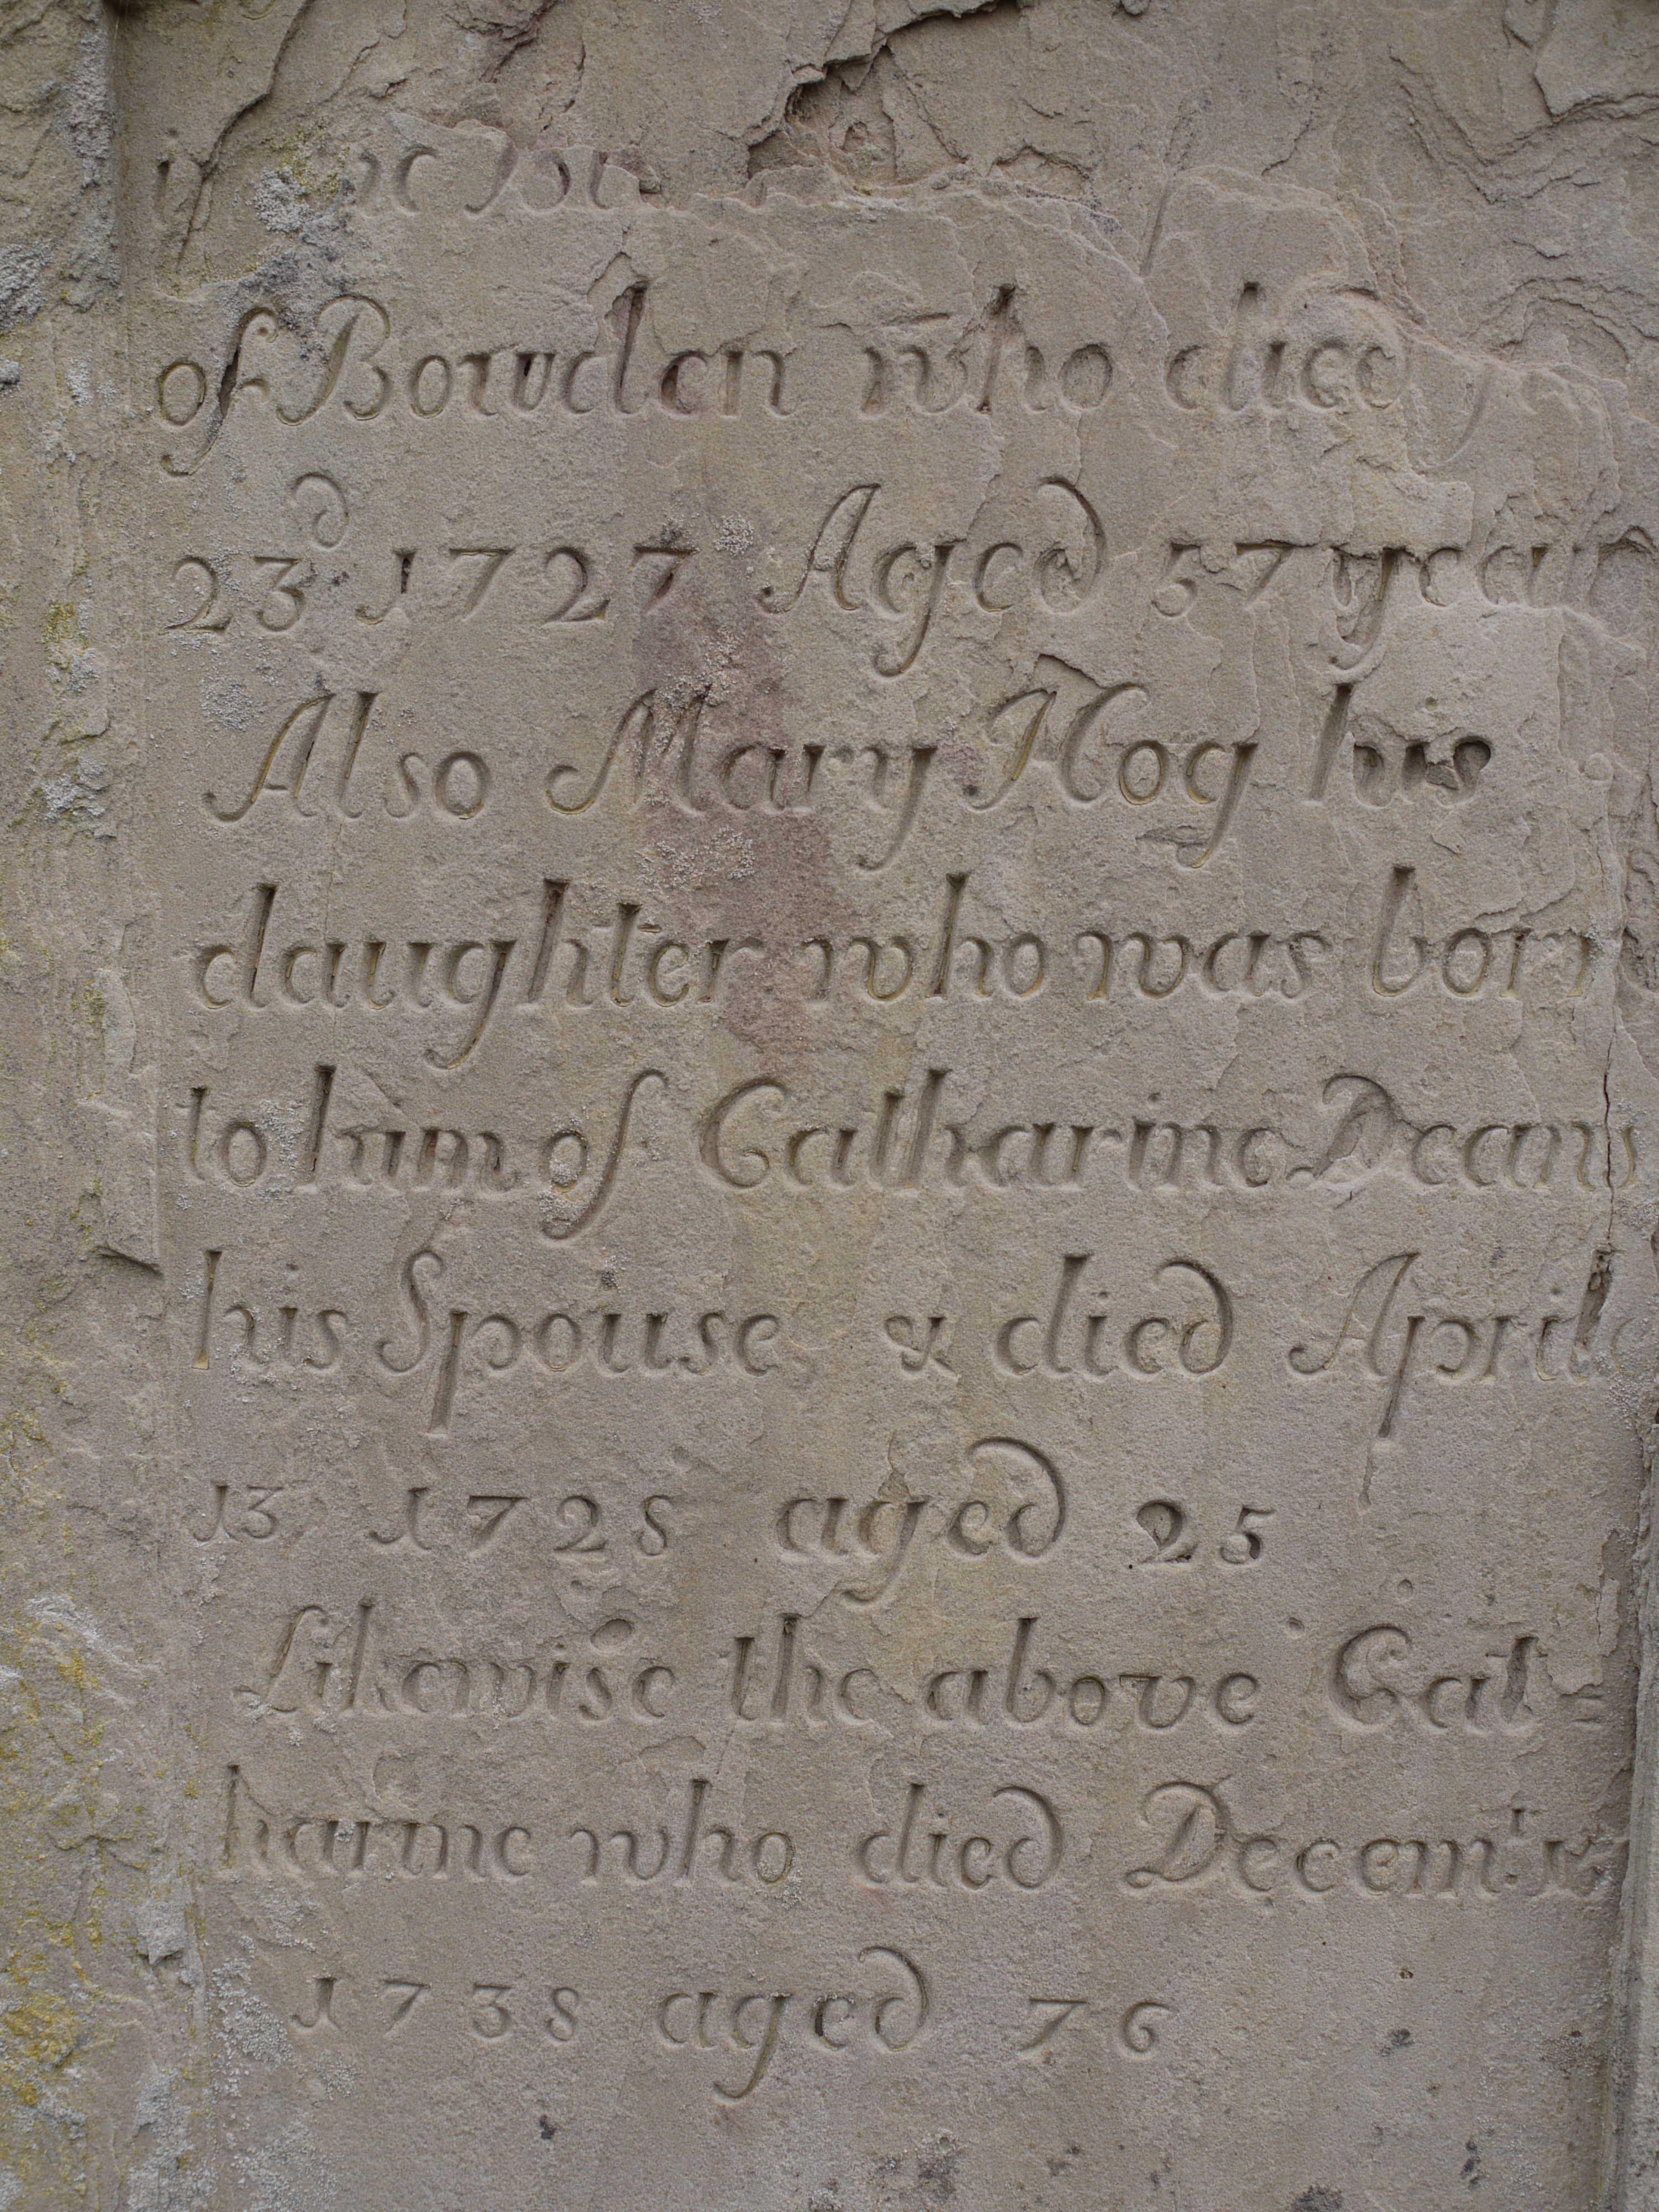 of Bowden who died
23d 1727 Aged 57 years
Also Mary Hog his
daughter who was born
to him of Catharine Deans
his Spouse & died April
13 1728 aged 25
Likewise the above Cat=
harine who died Decemr
1738 aged 76